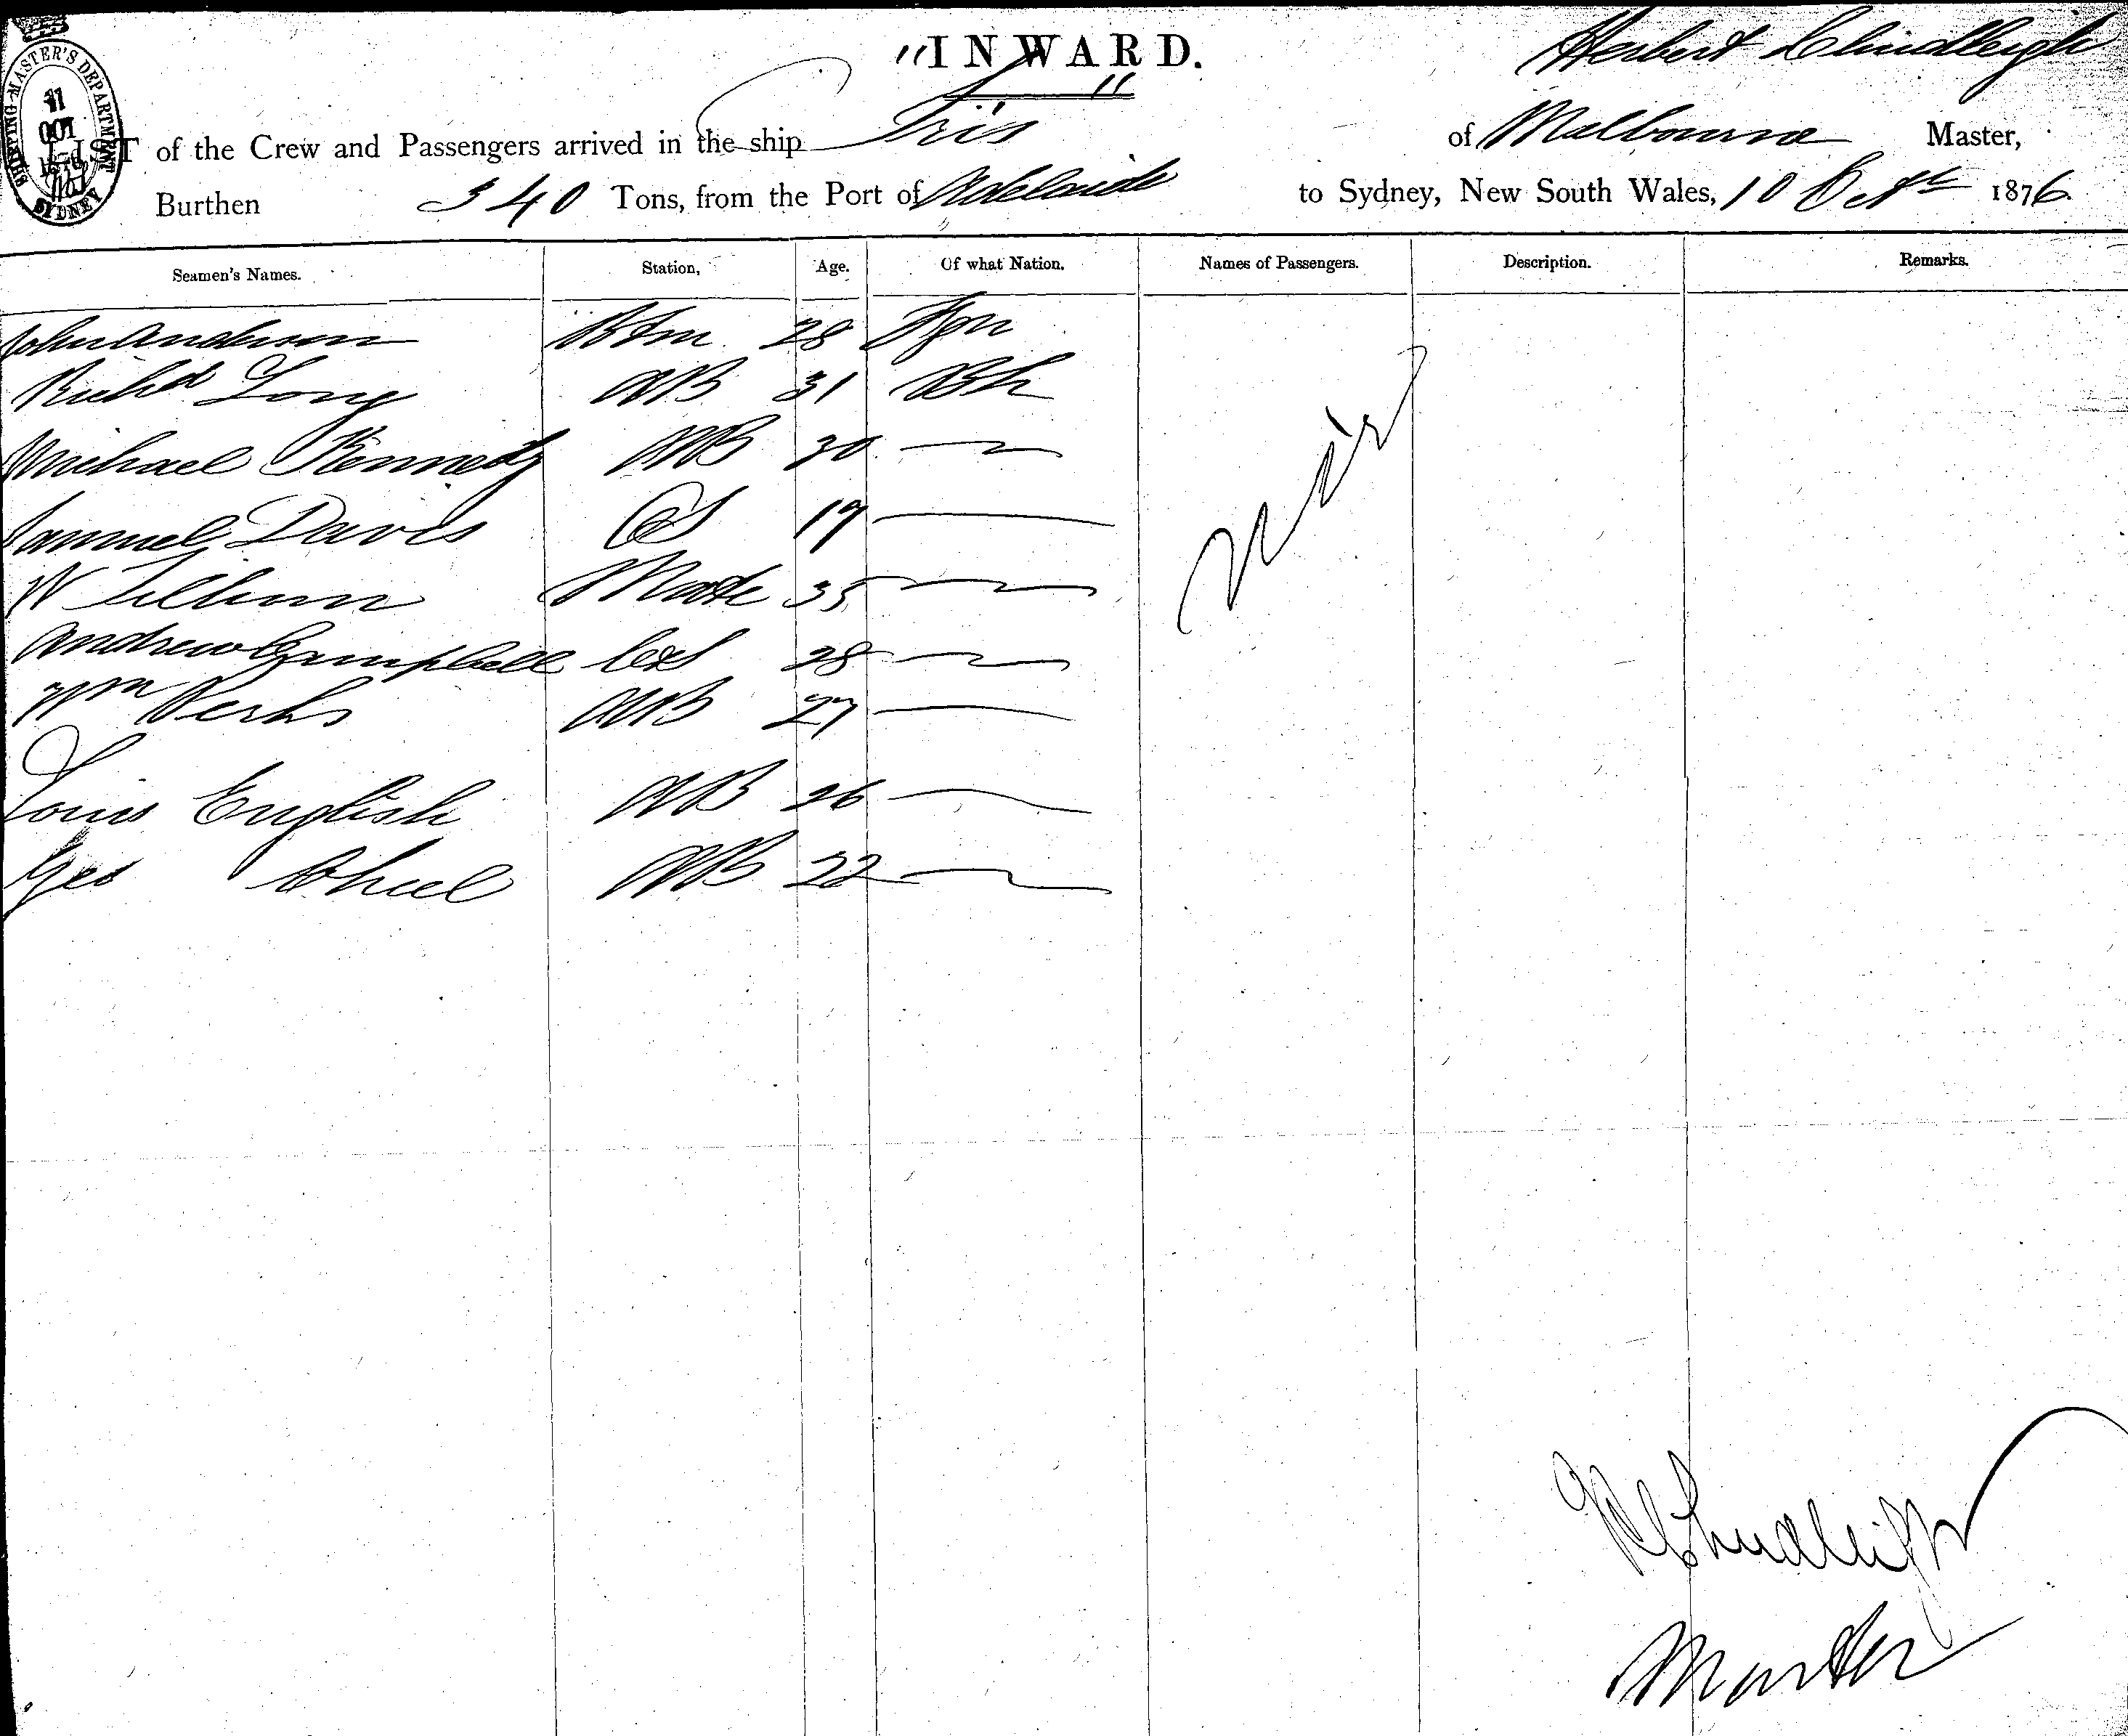 "INWARD.
Herbert Chudleigh
SHIPPING MASTER'S DEPARTMENT
11
OCT
1876
SYDNEY
LIST of the Crew and Passengers arrived in the ship Iris " of Melbourne Master,
Burthen 340 Tons, from the Port of Adelaide to Sydney, New South Wales, 10 Oct 1876
Seamen's Names. Station, Age. Of what Nation. Names of Passengers. Description. Remarks.
John Anderson 28
Richd Long AB 31
Michael Kennedy AB 30
Samuel Davis OS 19
W Mate 35
Andrew Campbell C&S 28
Wm Perks AB 27
Louis English AB 26
Geo AB 22
Chudleigh
Master